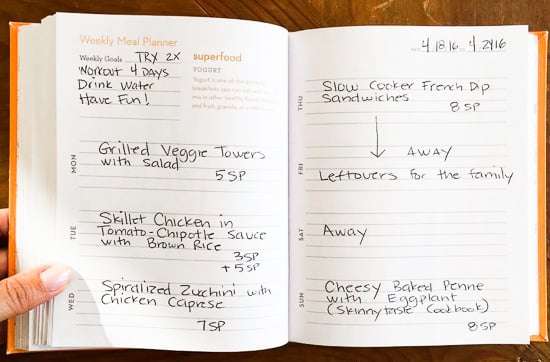 Weekly Meal Planner
Weekly Goals TRY 2X
Workout 4 Days
Drink Water
Have Fun!
superfood
YOGURT
Yogurt is one of the
breakfasts you can eat
mix in other healthy
and fruit, granola, or
MON
Grilled Veggie Towers
with Salad
5 SP
TUE
Skillet Chicken in
Tomato-Chipotle Sauce
with Brown Rice
3SP
+ 5 SP
WED
Spiralized Zucchini with
Chicken Caprese
7 SP
4.18.16 4.24.16
THU
Slow Cooker French Dip
Sandwiches
8 SP
FRI
AWAY
Leftovers for the family
SAT
Away
SUN
Cheesy Baked Penne
with Eggplant
(Skinnytaste Cookbook)
8 SP